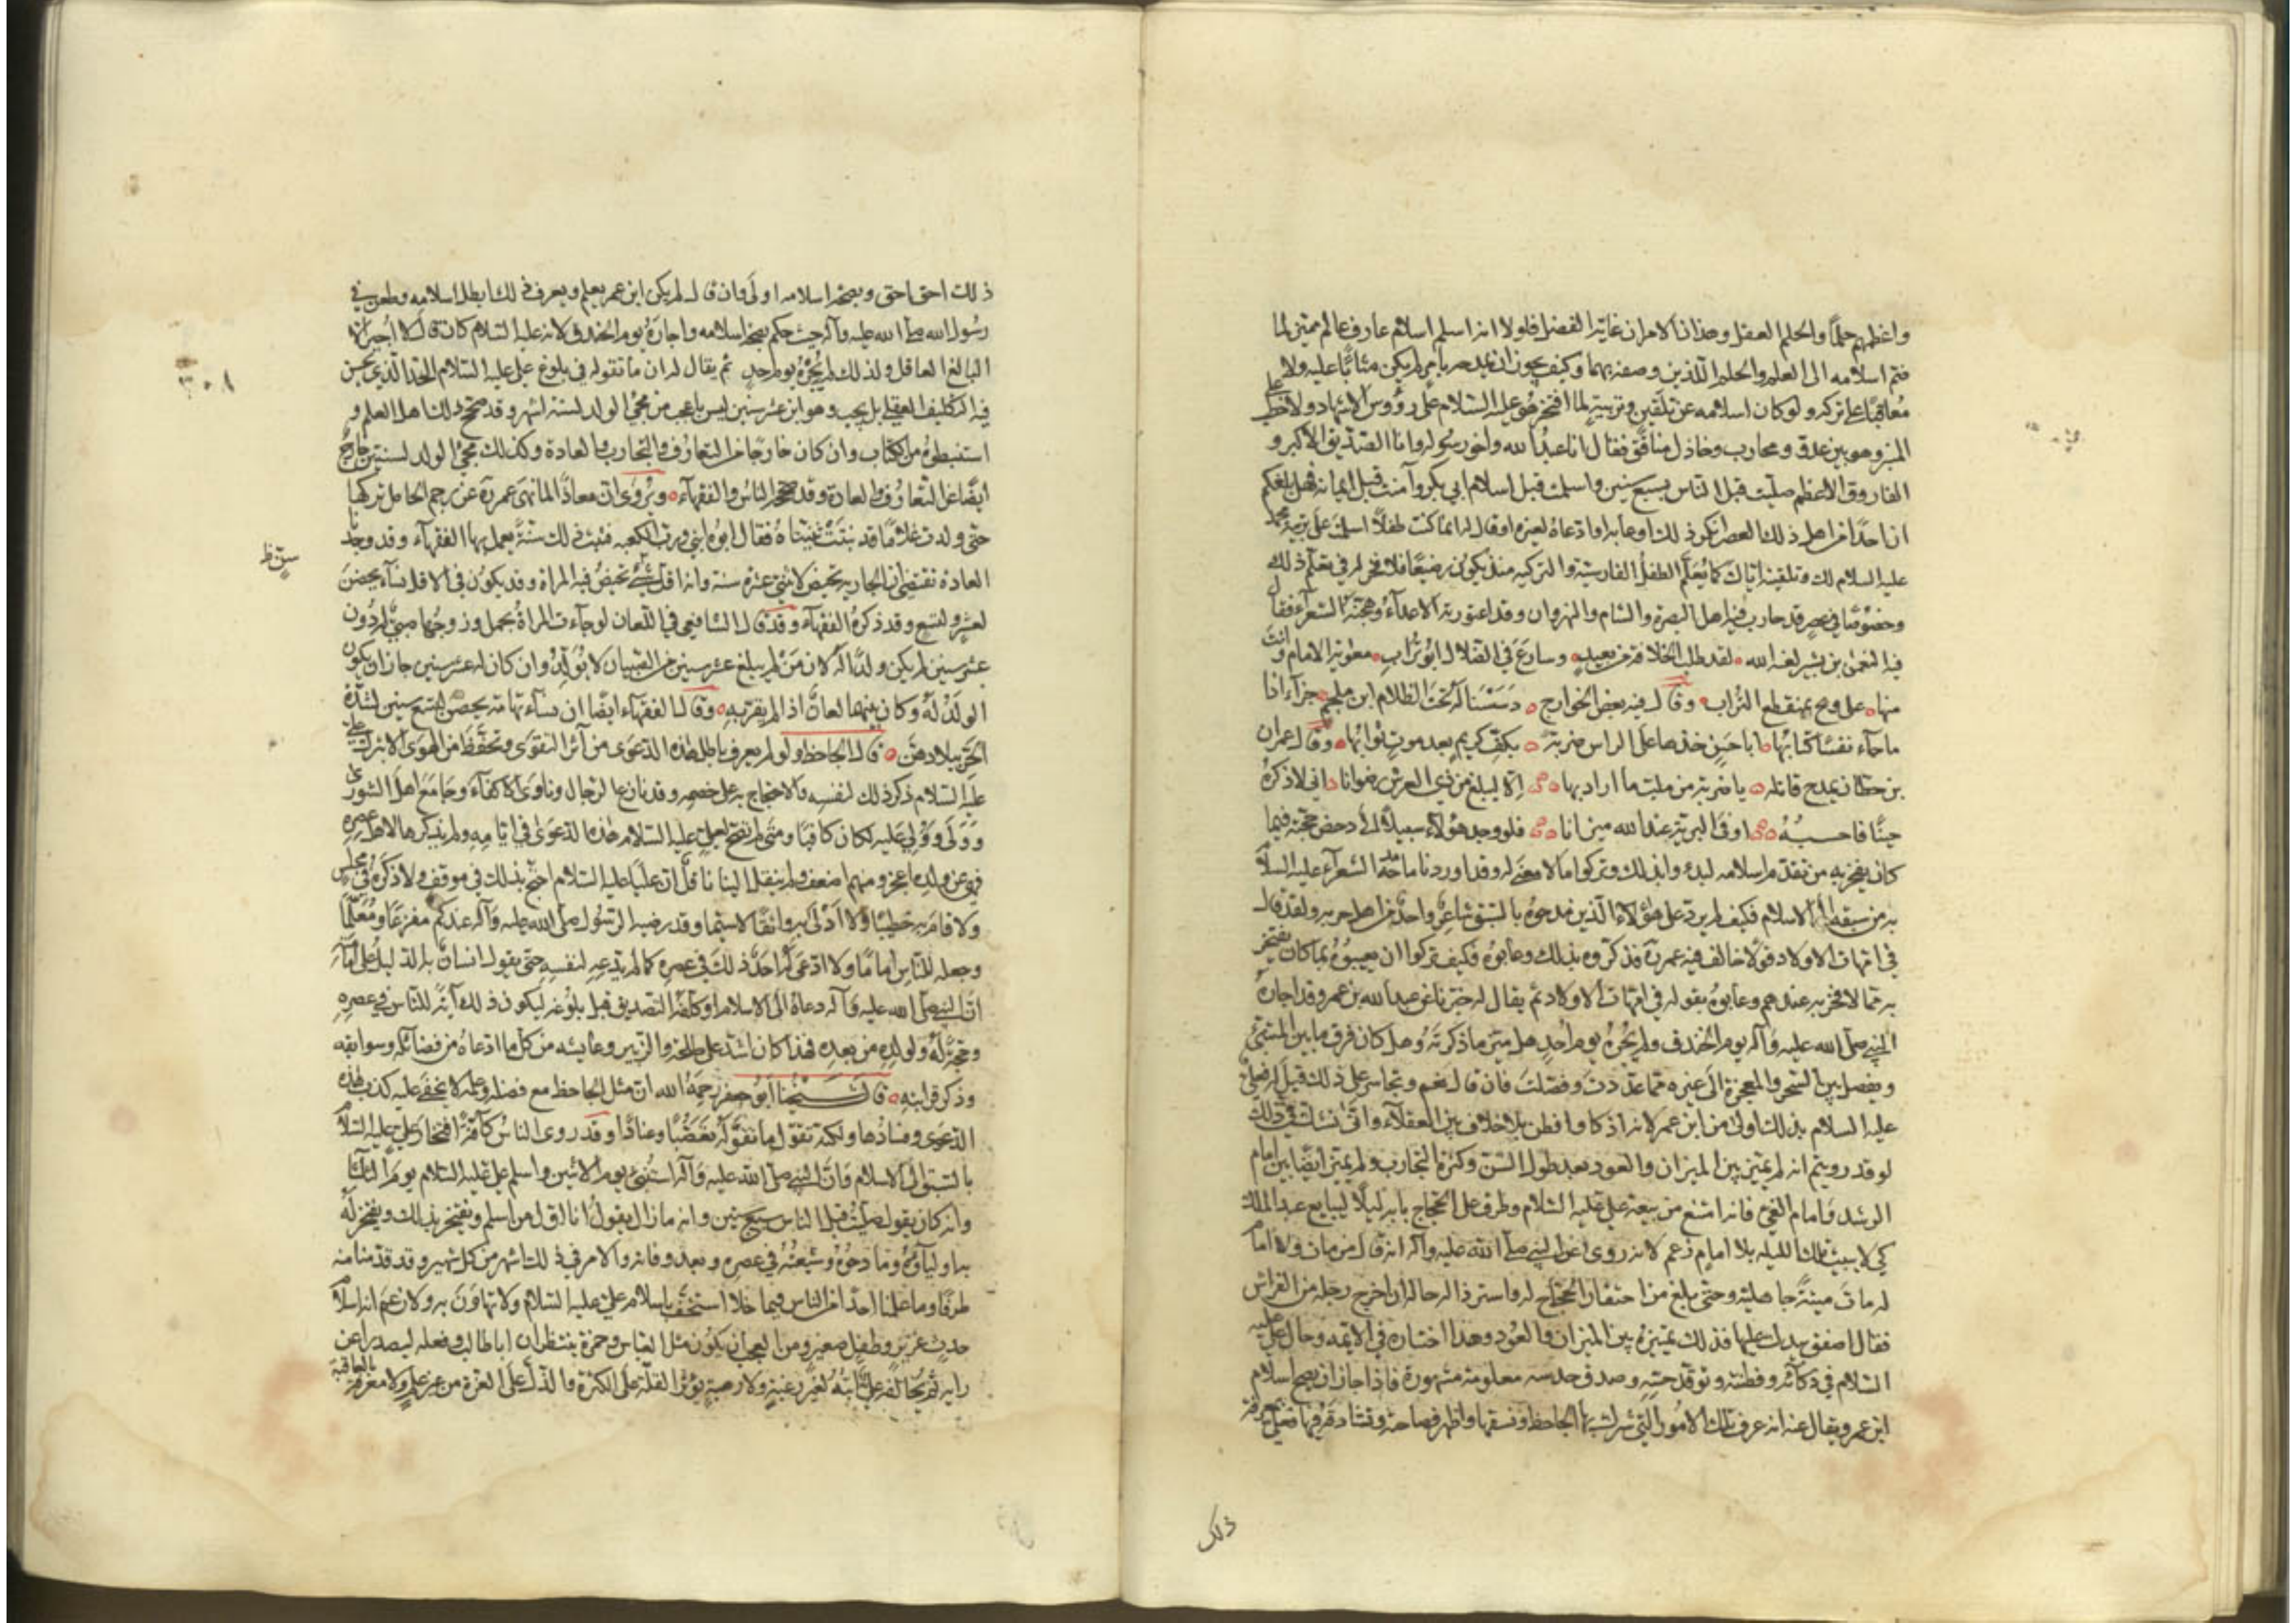 واعظمهم حلما والحلم العقل وهذان الامران غاية الفضل فلولا انه اسلم اسلام عارف عالم مميز لما
ضم اسلامه الى العلم والحلم اللذين وصفه بهما وكيف يجوز ان يمدحه بامر لم يكن مثابًا عليه ولا
مُعاقبًا على تركه ولو كان اسلامه عن تلقين وتربية لما افتخر هو عليه السلام على رؤوس الاشهاد ولا خطب على
المنبر وهو بين عدوّ ومحارب وخاذل منافق فقال انا عبدُ الله واخو رسوله وانا الصدّيق الاكبر و
الفاروق الاعظم صليت قبل الناس بسبع سنين واسلمت قبل اسلام ابي بكر وآمنت قبل ايمانه فهل بلغكم
ان احدًا من اهل ذلك العصر انكر ذلك او عابه او ادعاهُ لغيره او قال له انما كنت طفلًا اسلمت على تربية محمد
عليه السلام لك وتلقينه اياك كما يُعلَّم الطفلُ الفارسية والتركيه منذ يكون رضيعًا فلا فخر له في تعلّم ذلك
وخصُوصًا في عصر قد حارب فيه اهل البصرة والشام والنهروان وقد اعتورته الاعدآءُ وهجته الشعرآء فقال
فيه النعمن بن بشير لعنه الله لقد طلب الخلافة من بعيدٍ وسارع في الضلال ابو تُراب معوية الامام وانت
منها على وتح بمنقطع التُراب وقال فيه بعض الخوارج دسَسْنا له تحت الظلام ابن ملجم جزآء اذا
ما جآء نفسًا كتابُها ابا حسنٍ خذها على الراس ضربة بكفّ كريمٍ بعد موتٍ ثوابُها وقال عمران
بن حطان يمدح قاتله يا ضربة من ميت ما اراد بها الا ليبلغ من ذي العرش رضوانا اني لاذكرهُ
حينًا فاحسبُهُ اوفى البرية عند الله ميزانا فلو وجد هؤلاء سبيلًا الى دحض حجّة فيما
كان يفخر به من تقدّم اسلامه لبدءوا بذلك وتركوا ما لا معنى له وقد اوردنا ما مدحه الشعرآء عليه السلام
به من سبقه الى الاسلام فكيف لم يردّ على هؤلاء الذين مدحوهُ بالسبق شاعرٌ واحدٌ من اهل حربه ولقد قال
في امّهات الاولاد قولًا خالف فيه عمر فذكروه بذلك وعابوهُ فكيف تركوا ان يعيبوُهُ بما كان يفتخر
به مما لا فخر به عندهم وعابوهُ بقوله في امّهات الاولاد ثم يقال له خبّرنا عن عبد الله بن عمر وقد اجازهُ
النبي صلى الله عليه وآله يوم الخندق ولم يُجزهُ يوم أحدٍ هل ميّز ما ذكرته وهل كان فرق ما بين المتنبئ
ويفصل بين السحر والمعجزة الى غيره مما عدّدتَ وفصّلتَ فان قال نعم وتجاسر على ذلك قيل له فعلى
عليه السلام بذلك اولى من ابن عمر لانه اذكى وافطن بلا خلاف بين العقلآء وانّى نشك في ذلك
لو قد رويتم انه لم يميّز بين الميزان والعود بعد طول السنّ وكثرة التجارب ولم يميّز ايضًا بين امام
الرشد وامام الغيّ فانه امتنع من بيعة علي عليه السلام وطرق على الحجاج بابه ليلًا ليبايع عبد الملك
كي لا يبيت تلك الليله بلا امام زعم لانه روى عن النبي صلى الله عليه وآله انه قال من مات ولا امام
له مات ميتةً جاهليةً وحتى بلغ من احتقار الحجاج له واسترذاله حاله ان اخرج رجله من الفراش
فقال اصفق بيدك عليها فذلك تمييزه بين الميزان والعُود وهذا اختياره في الايمه وحال علي عليه
السلام في ذكآئه وفطنته وتوقّد حسّه وصدق حدسه معلومة مشهورة فاذا جاز ان يصح اسلام
ابن عمر ويقال عنه انه عرف تلك الامُور التي سردها الجاحظ ونسقها واظهر فصاحته وتشادقه فيها فعلي بمعرفة
ذلك
ذلك احق احق وبصحة اسلامه اولى وان قال لم يكن ابن عمر يعلم ويعرف ذلك ابطل اسلامه وطعن في
رسُول الله صلى الله عليه وآله حيث حكم بصحة اسلامه واجازهُ يوم الخندق لانه عليه السلام كان قال لا اُجيز الا
البالغ العاقل ولذلك لم يُجزهُ يوم احدٍ ثم يقال له ان ما تقوله في بلوغ علي عليه السلام الحدّ الذي يحسن
فيه التكليف العقلي بل يجب وهو ابن عشر سنين ليس باعجب من مجيُ الولد لستة اشهر وقد صحح ذلك اهل العلم و
استنبطوهُ من الكتاب وان كان خارجًا من التعارُف والتجارب والعادة وكذلك مجيُ الولد لسنتين خارجٌ
ايضًا عن التعارُف والعادة وقد صححه الناس والفقهآء ويُروى ان معاذًا لما نهى عمر عن رجم الحامل تركها
حتى ولدت غلامًا قد نبتت ثنيتاهُ فقال ابوُه ابني وربّ الكعبه فثبت ذلك سنّةً يعمل بها الفقهآء وقد وجدنا
العادة تقتضي ان الجاريه تحيض لاثنتي عشرة سنة وانه اقل سنٍّ تحيضُ فيه المراة وقد يكون في الاقل نسآء يحضن
سن ظ
لعشرٍ ولتسع وقد ذكرهُ الفقهآء وقد قال الشافعي في اللعان لو جآءت المراةُ بحمل وزوجُها صبيٌّ له دُون
عشر سنين لم يكن ولدًا له لان من لم يبلغ عشر سنين من الصبيان لا يُولد له وان كان له عشر سنين جاز ان يكون
الولدُ لهُ وكان بينهما لعانٌ اذا لم يقرّ به وقال الفقهآء ايضًا ان نسآء تهامة يحضن لتسع سنين لشدّة
الحرّ ببلادهن قال الجاحظ ولو لم يعرف باطل هذه الدعوى من آثر التقوى وتحفّظ من الهوى الا بترك علي
عليه السلام ذكر ذلك لنفسه والاحتجاج به على خصمه وقد نازع الرجال وناوى الاكفآء وجامع اهل الشورى
وولّى ووُلّي عليه لكان كافيًا ومتى لم تصح لعلي عليه السلام هذه الدعوى في ايامه ولم يذكرها اهل عصره
فهو عن ولده اعجز ومنهم اضعف ولم ينقل الينا ناقلٌ ان عليًا عليه السلام احتجّ بذلك في موقف ولا ذكرهُ في مجلس
ولا قام به خطيبًا ولا ادلى به واثقًا لاسيّما وقد رضيه الرسُول صلى الله عليه وآله عندكم مفزعًا ومُعلّمًا
وجعله للناس امامًا ولا ادعى له احدٌ ذلك في عصره كما لم يدّعه لنفسه حتى يقول انسانٌ بل الدليل على امامته
انّ النبي صلى الله عليه وآله دعاهُ الى الاسلام او كلفه التصديق قبل بلوغه ليكون ذلك آيةً للناس في عصره
وحجةً لهُ ولولده من بعده فهذا كان اشدّ على طلحة والزبير وعايشه من كل ما ادعاهُ من فضآئله وسوابقه
وذكر قرابته قال شيخُنا ابُو جعفر رحمهُ الله ان مثل الجاحظ مع فضله وعلمه لا يخفى عليه كذب هذه
الدعوى وفسادُها ولكنه تقوّل ما تقوّله تعصّبًا وعنادًا وقد روى الناسُ كآفةً افتخار علي عليه السلام
بالسبق الى الاسلام وانّ النبي صلى الله عليه وآله استُنبئ يوم الاثنين واسلم علي عليه السلام يوم الثلاثا
وانه كان يقول صليتُ قبل الناس سبع سنين وانه ما زال يقولُ انا اوّل من اسلم ويفتخر بذلك ويفتخر له
به اوليآؤهُ ومادحُوهُ وشيعتُهُ في عصره وبعد وفاته والامر في ذلك اشهر من كل شهير وقد قدّمنا منه
طرفًا وما علمنا احدًا من الناس فيما خلا استخفّ باسلام علي عليه السلام ولا تهاون به ولا زعم انه اسلم اسلام
حدثٍ غريرٍ وطفلٍ صغيرٍ ومن العجب ان يكُون مثل العباس وحمزة ينتظران ابا طالب وفعله ليصدرا عن
رايه ثم يُخالفه عليٌّ ابنُهُ لغير رغبةٍ ولا رهبةٍ يؤثر القلّة على الكثرة والذلّ على العزّة من غير علمٍ ولا معرفة بالعاقبة
٣٠٨